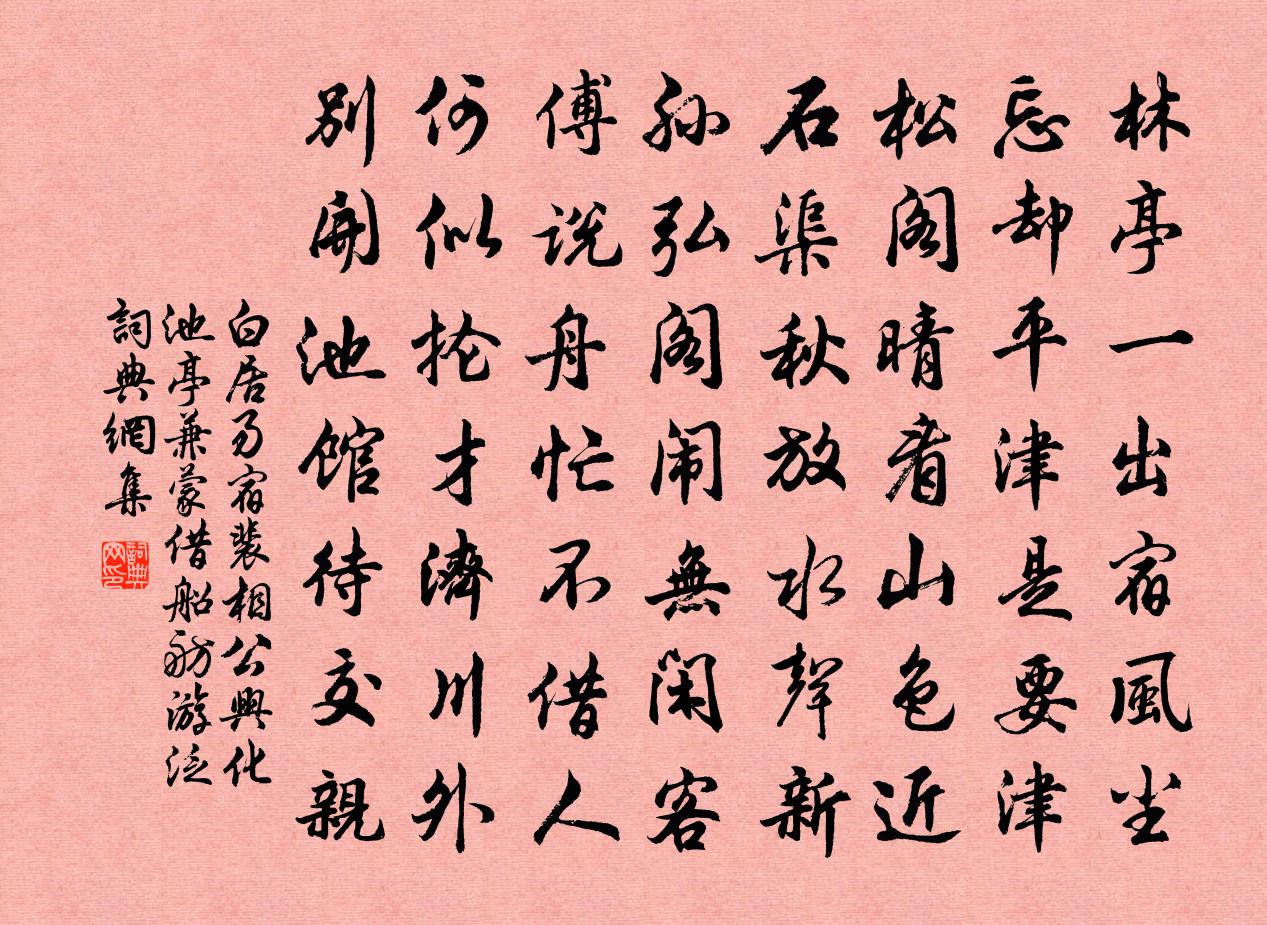 林亭一出宿風尘
忘却平津是要津
松阁晴看山色近
石渠秋放水聲新
孙弘阁闹無闲客
傅说舟忙不借人
何似抡才濟川外
别開池馆待交親
白居易宿裴相公興化
池亭兼蒙借船舫游泛
詞典網集
詞典
网印